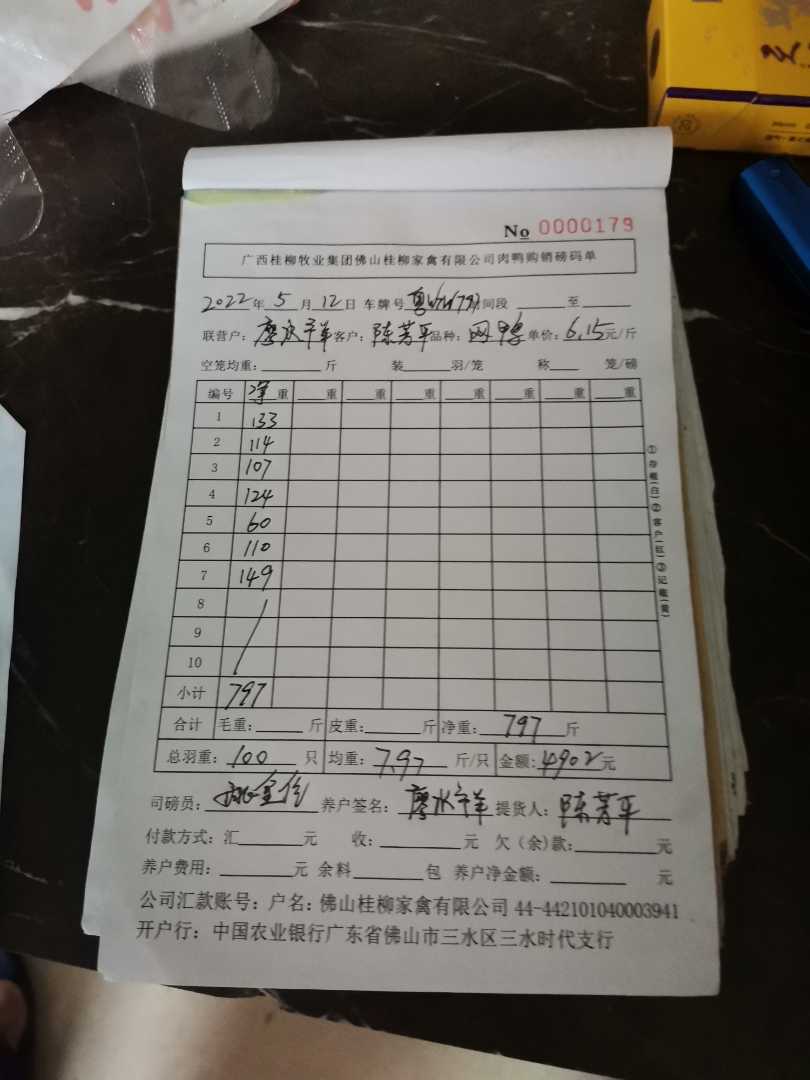 No 0000179
广西桂柳牧业集团佛山桂柳家禽有限公司肉鸭购销磅码单
2022年 5月 12日 车牌号 间段 至
联营户: 廖水宇羊 客户: 陈芳平 品种: 网鸭 单价: 6.15元/斤
空笼均重: 斤 装 羽/笼 称 笼/磅
编号 净重 重 重 重 重 重 重 重
1 133
2 114
3 107
4 124
5 60
6 110
7 149
8
9
10
小计 797
合计 毛重: 斤 皮重: 斤 净重: 797 斤
总羽重: 100 只 均重: 7.97 斤/只 金额: 4902元
司磅员: 养户签名: 廖水宇羊 提货人: 陈芳平
付款方式: 汇 元 收: 元 欠(余)款: 元
养户费用: 元 余料 包 养户净金额: 元
公司汇款账号: 户名: 佛山桂柳家禽有限公司 44-442101040003941
开户行: 中国农业银行广东省佛山市三水区三水时代支行
①存根(白)②客户(红)③记账(黄)